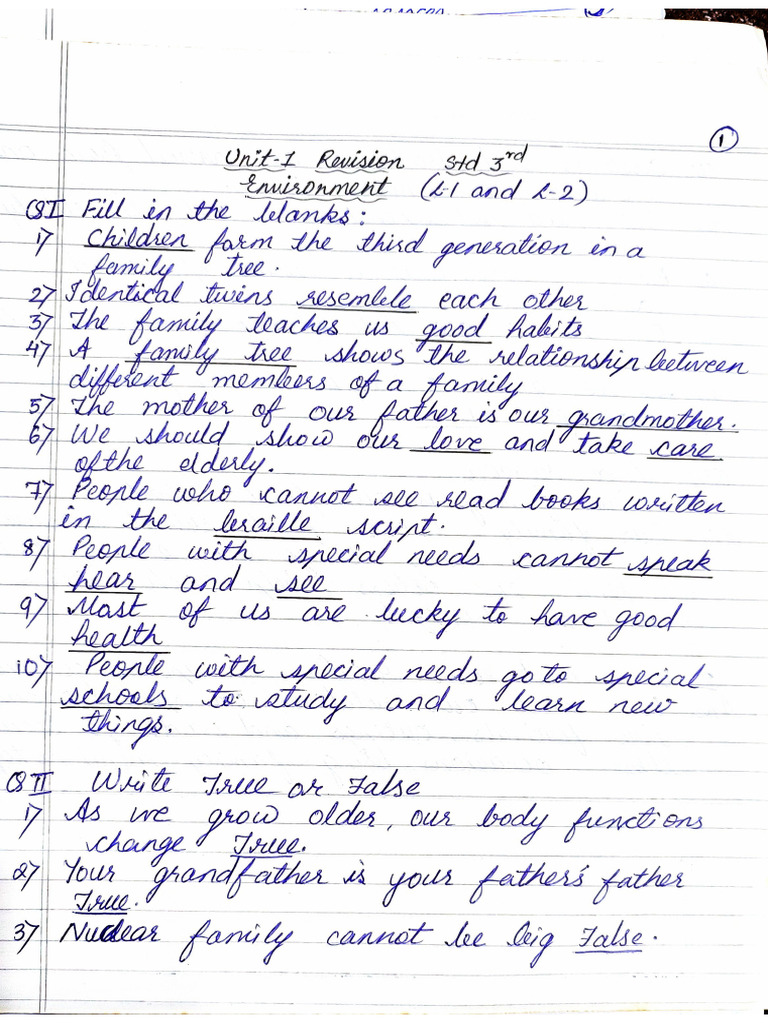 1
Unit-1 Revision Std 3rd
Environment (L-1 and L-2)
QI Fill in the blanks:
1) Children form the third generation in a
family tree.
2) Identical twins resemble each other
3) The family teaches us good habits
4) A family tree shows the relationship between
different members of a family
5) The mother of our father is our grandmother.
6) We should show our love and take care
of the elderly.
7) People who cannot see read books written
in the braille script.
8) People with special needs cannot speak
hear and see
9) Most of us are lucky to have good
health
10) People with special needs go to special
schools to study and learn new
things.
QII Write True or False
1) As we grow older, our body functions
change True.
2) Your grandfather is your father's father
True.
3) Nuclear family cannot be big False.